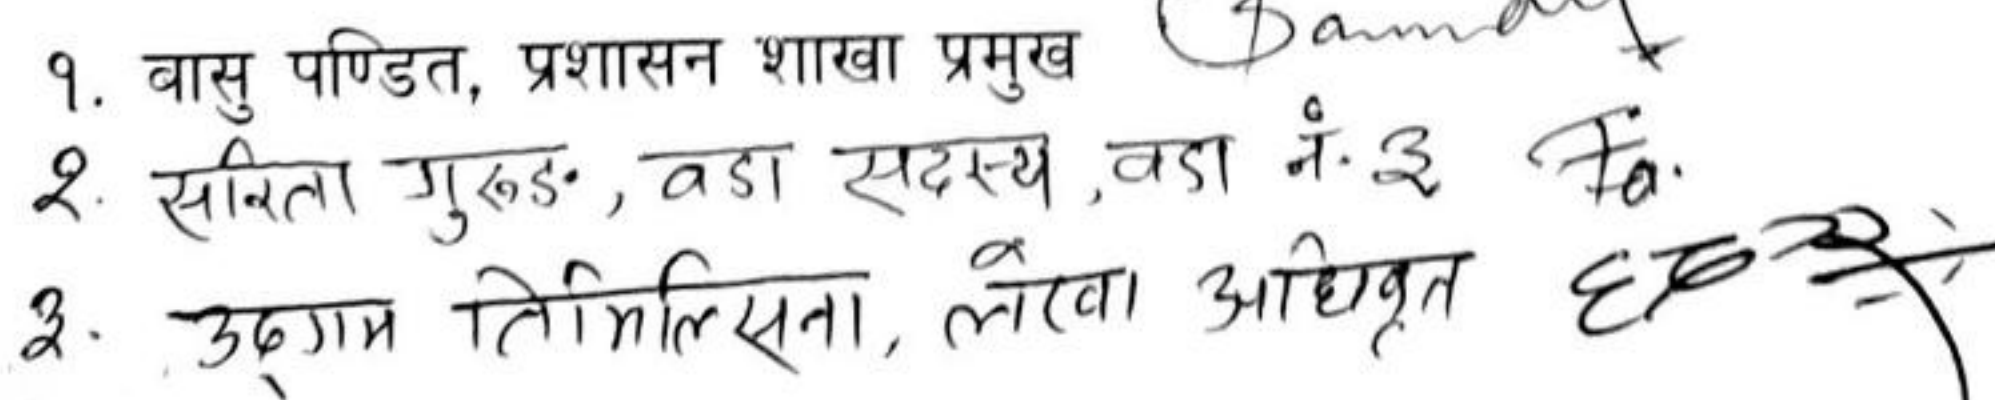 १. वासु पण्डित, प्रशासन शाखा प्रमुख
२. सरिता गुरुङ, वडा सदस्य, वडा नं. ३
३. उद्गम तिमिल्सिना, लेखा अधिकृत